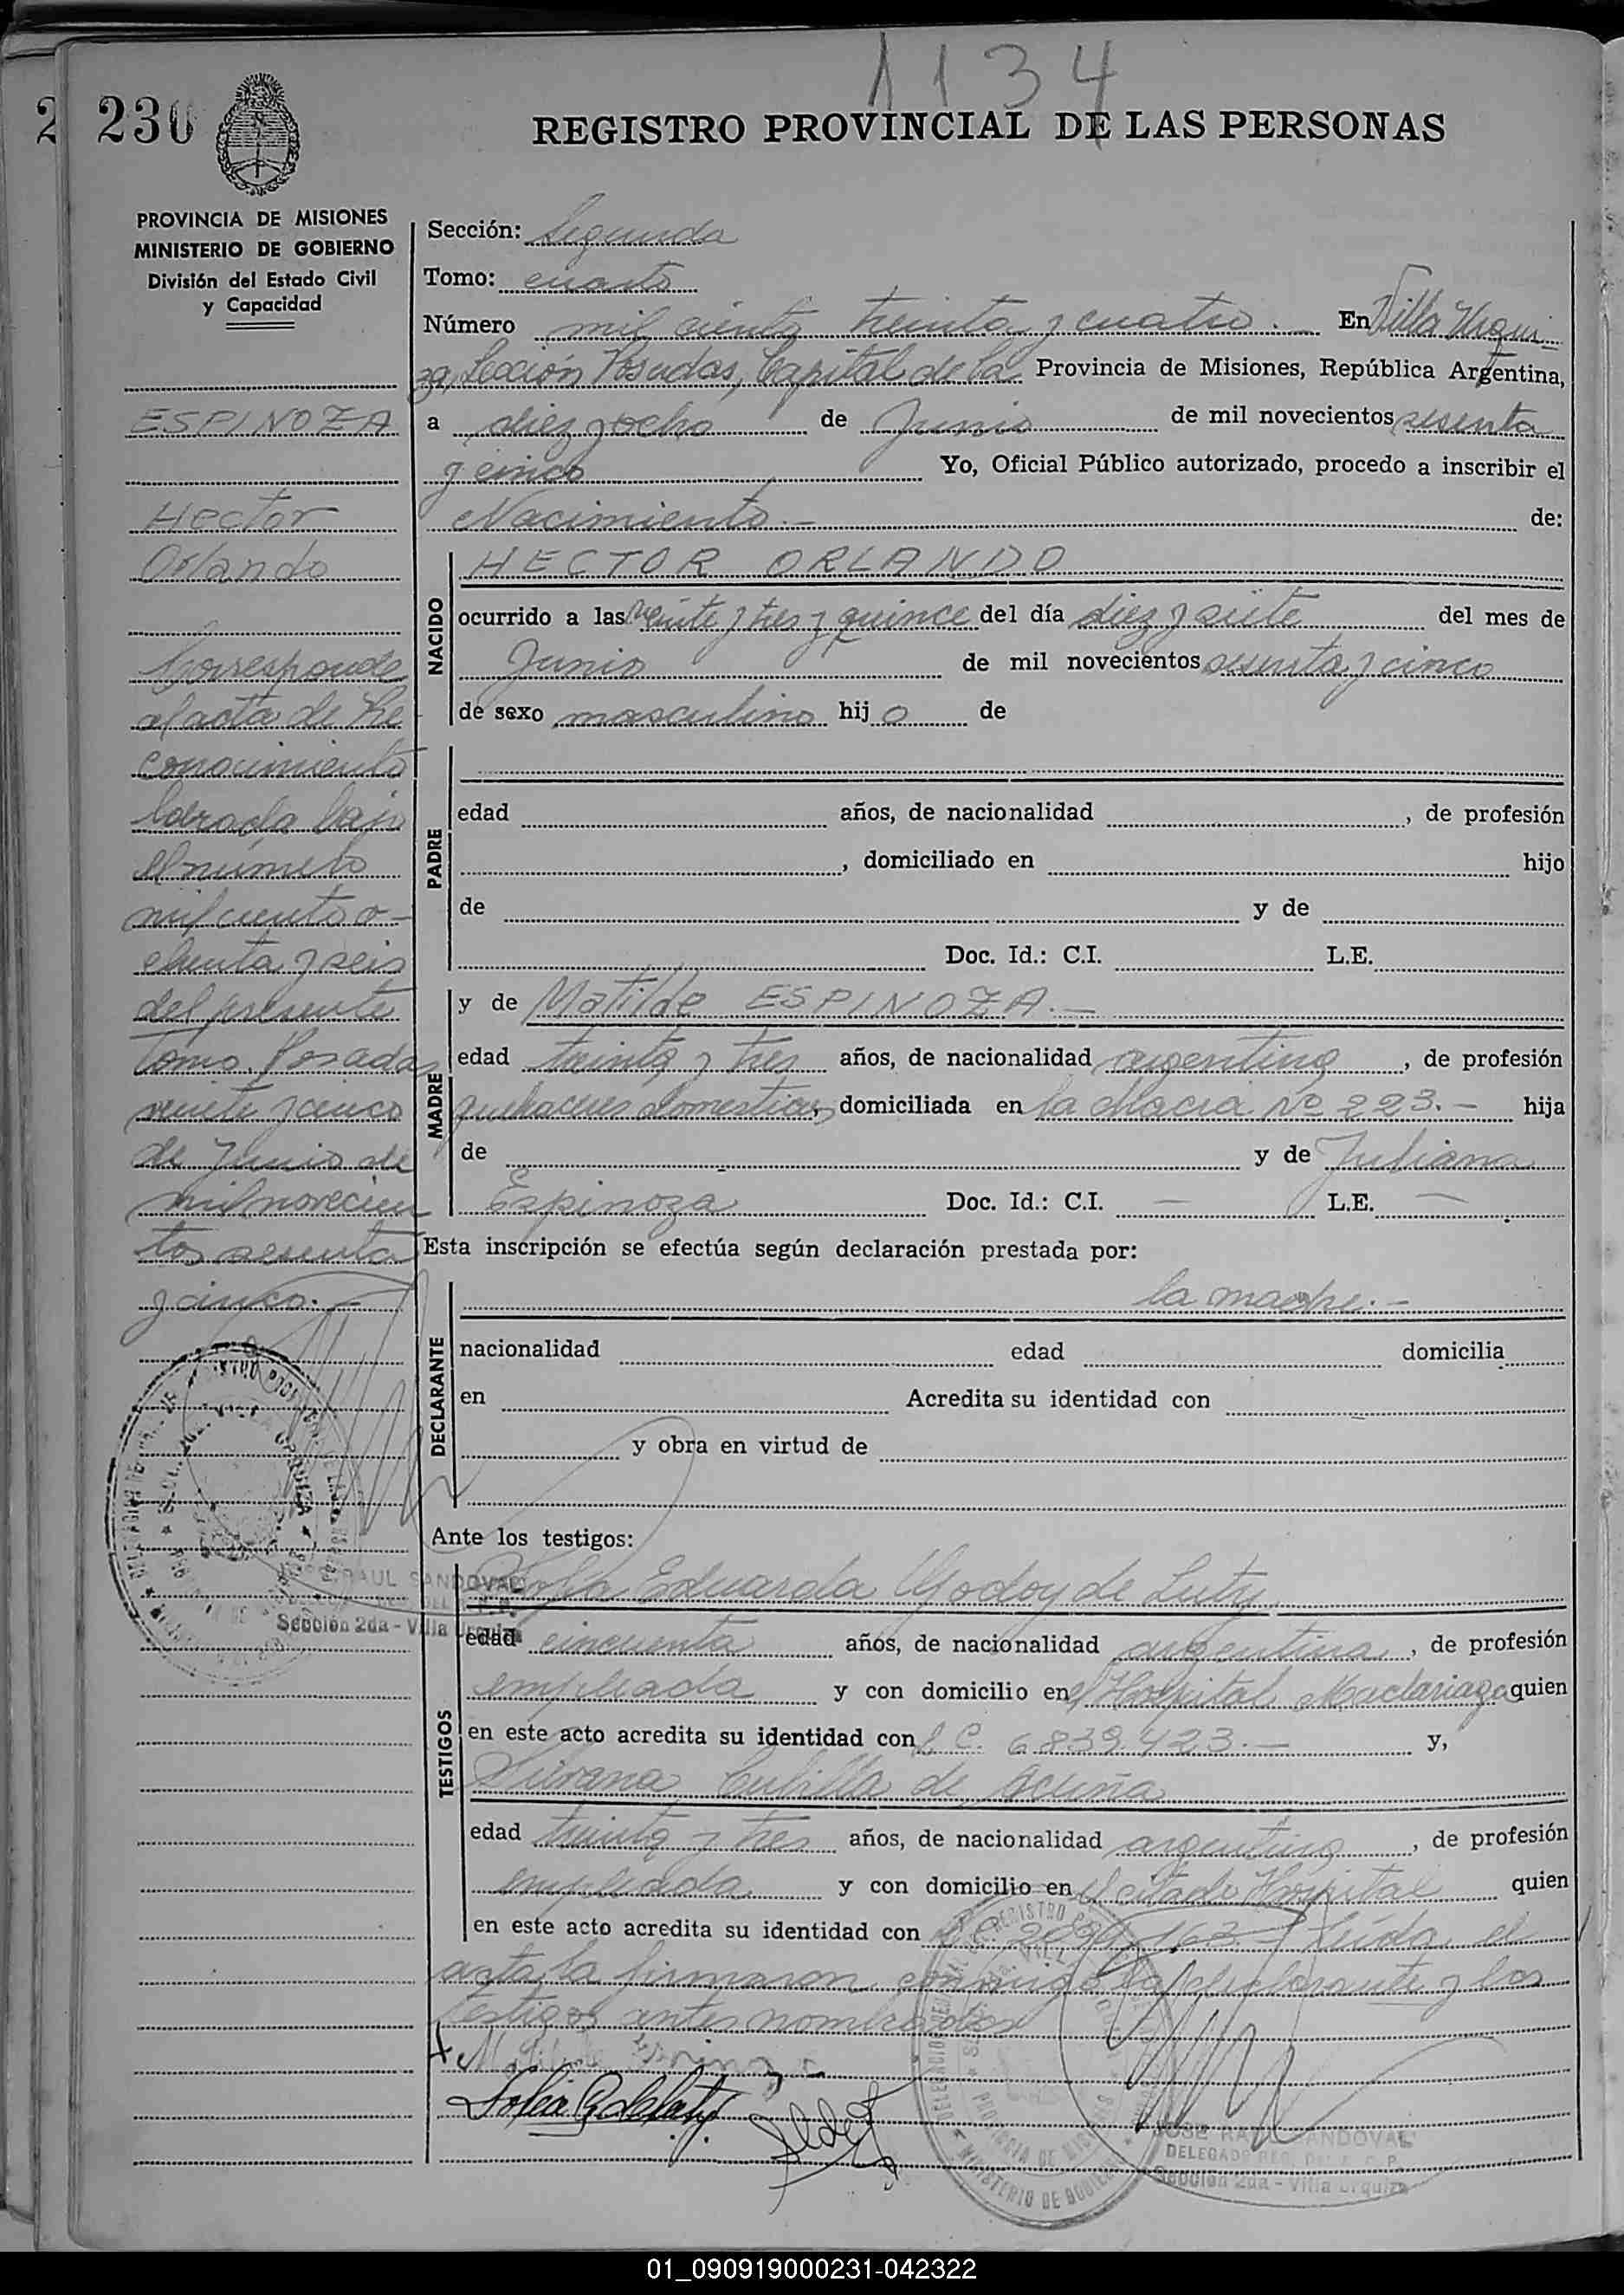 1134
230
REGISTRO PROVINCIAL DE LAS PERSONAS
PROVINCIA DE MISIONES
MINISTERIO DE GOBIERNO
División del Estado Civil
y Capacidad
ESPINOZA
Hector
Orlando
Corresponde
al acta de Re
conocimiento
labrada bajo
el número
mil ciento o-
chenta y seis
del presente
tomo. Posadas
veinte y cinco
de Junio de
mil novecien
tos sesenta
y cinco.-
Sección: Segunda
Tomo: cuarto
Número mil ciento treinta y cuatro.- En Villa Urqui-
za, Sección Posadas, Capital de la Provincia de Misiones, República Argentina,
a diez y ocho de Junio de mil novecientos sesenta
y cinco Yo, Oficial Público autorizado, procedo a inscribir el
Nacimiento.- de:
NACIDO
HECTOR ORLANDO
ocurrido a las veinte y tres y quince del día diez y siete del mes de
Junio de mil novecientos sesenta y cinco
de sexo masculino hijo de
PADRE
edad años, de nacionalidad , de profesión
, domiciliado en hijo
de y de
Doc. Id.: C.I. L.E.
MADRE
y de Matilde ESPINOZA.-
edad treinta y tres años, de nacionalidad argentina, de profesión
quehaceres domesticos, domiciliada en la Chacra Nº 223.- hija
de y de Juliana
Espinoza Doc. Id.: C.I. — L.E. —
Esta inscripción se efectúa según declaración prestada por:
DECLARANTE
la madre.-
nacionalidad edad domicilia
en Acredita su identidad con
y obra en virtud de
Ante los testigos:
TESTIGOS
Eduarda Godoy de Luty
edad cincuenta años, de nacionalidad argentina, de profesión
empleada y con domicilio en el Hospital Madariaga quien
en este acto acredita su identidad con L.C. 6839.423.- y,
Silvana Cubilla de Acuña
edad treinta y tres años, de nacionalidad argentina, de profesión
empleada y con domicilio en el citado Hospital quien
en este acto acredita su identidad con Leída el
acta la firmaron conmigo la declarante y los
testigos antes nombrados
JOSE RAUL SANDOVAL
Sección 2da - Villa Urquiza
JOSE RAUL SANDOVAL
DELEGADO
Sección 2da - Villa Urquiza
MINISTERIO DE GOBIERNO
01_090919000231-042322